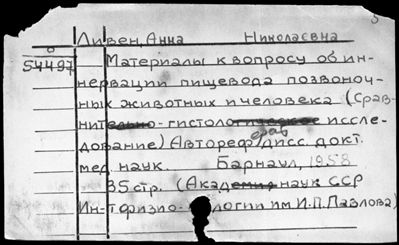 Ливен, Анна Николаевна
54497 Материалы к вопросу об ин-
нервации пищевода позвоноч-
ных животных и человека (срав-
нительно-гистологическое иссле-
дование) Автореф/дисс. докт.
мед. наук. Барнаул, 1958
35 стр. (Академия наук ССР
Ин-т физио-логии им И.П.Павлова)